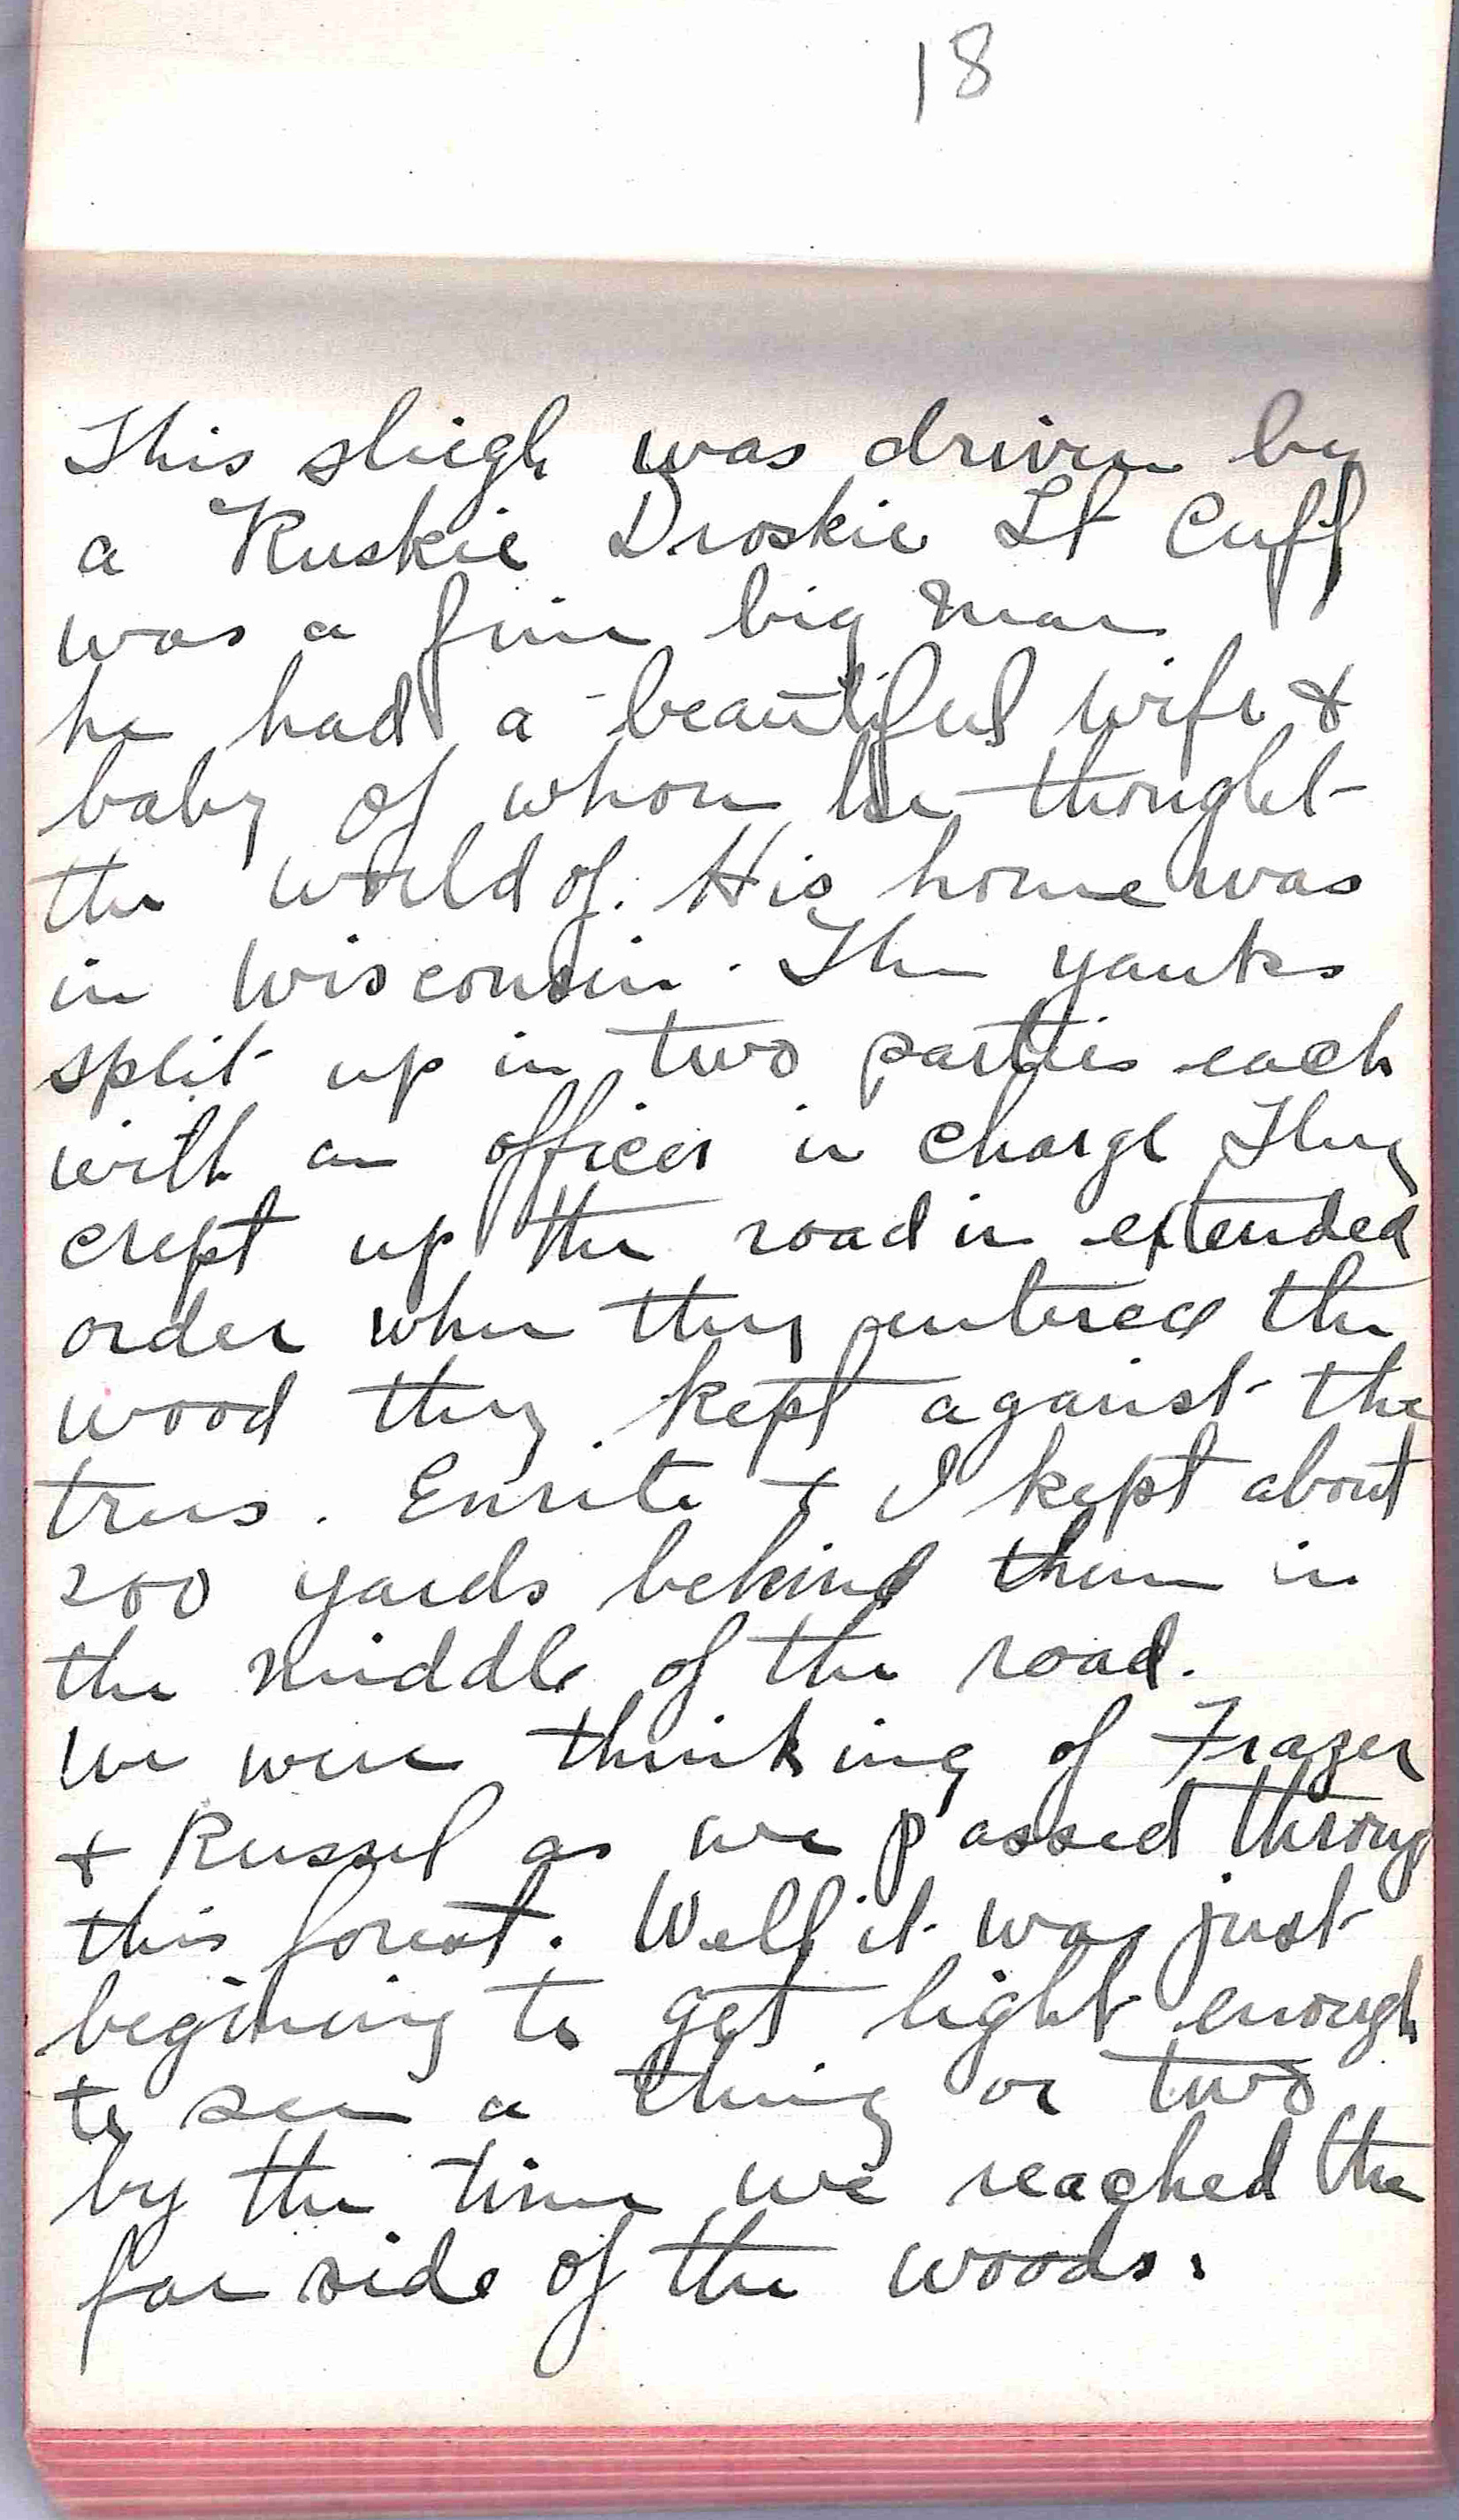 18
This sleigh was driven by
a Ruskie Droskie Lt Cuff
was a fine big man
he had a beautiful wife &
baby of whom he thought
the world of. His home was
in Wisconsin. The yanks
split up in two parties each
with an officer in charge They
crept up the road in extended
order when they entered the
wood they kept against the
trees. Enrite + I kept about
200 yards behind them in
the middle of the road.
We were thinking of Frazer
+ Russel as we passed throug
this forest. Well it was just
begining to get light enough
to see a thing or two
by the time we reached the
far side of the woods.